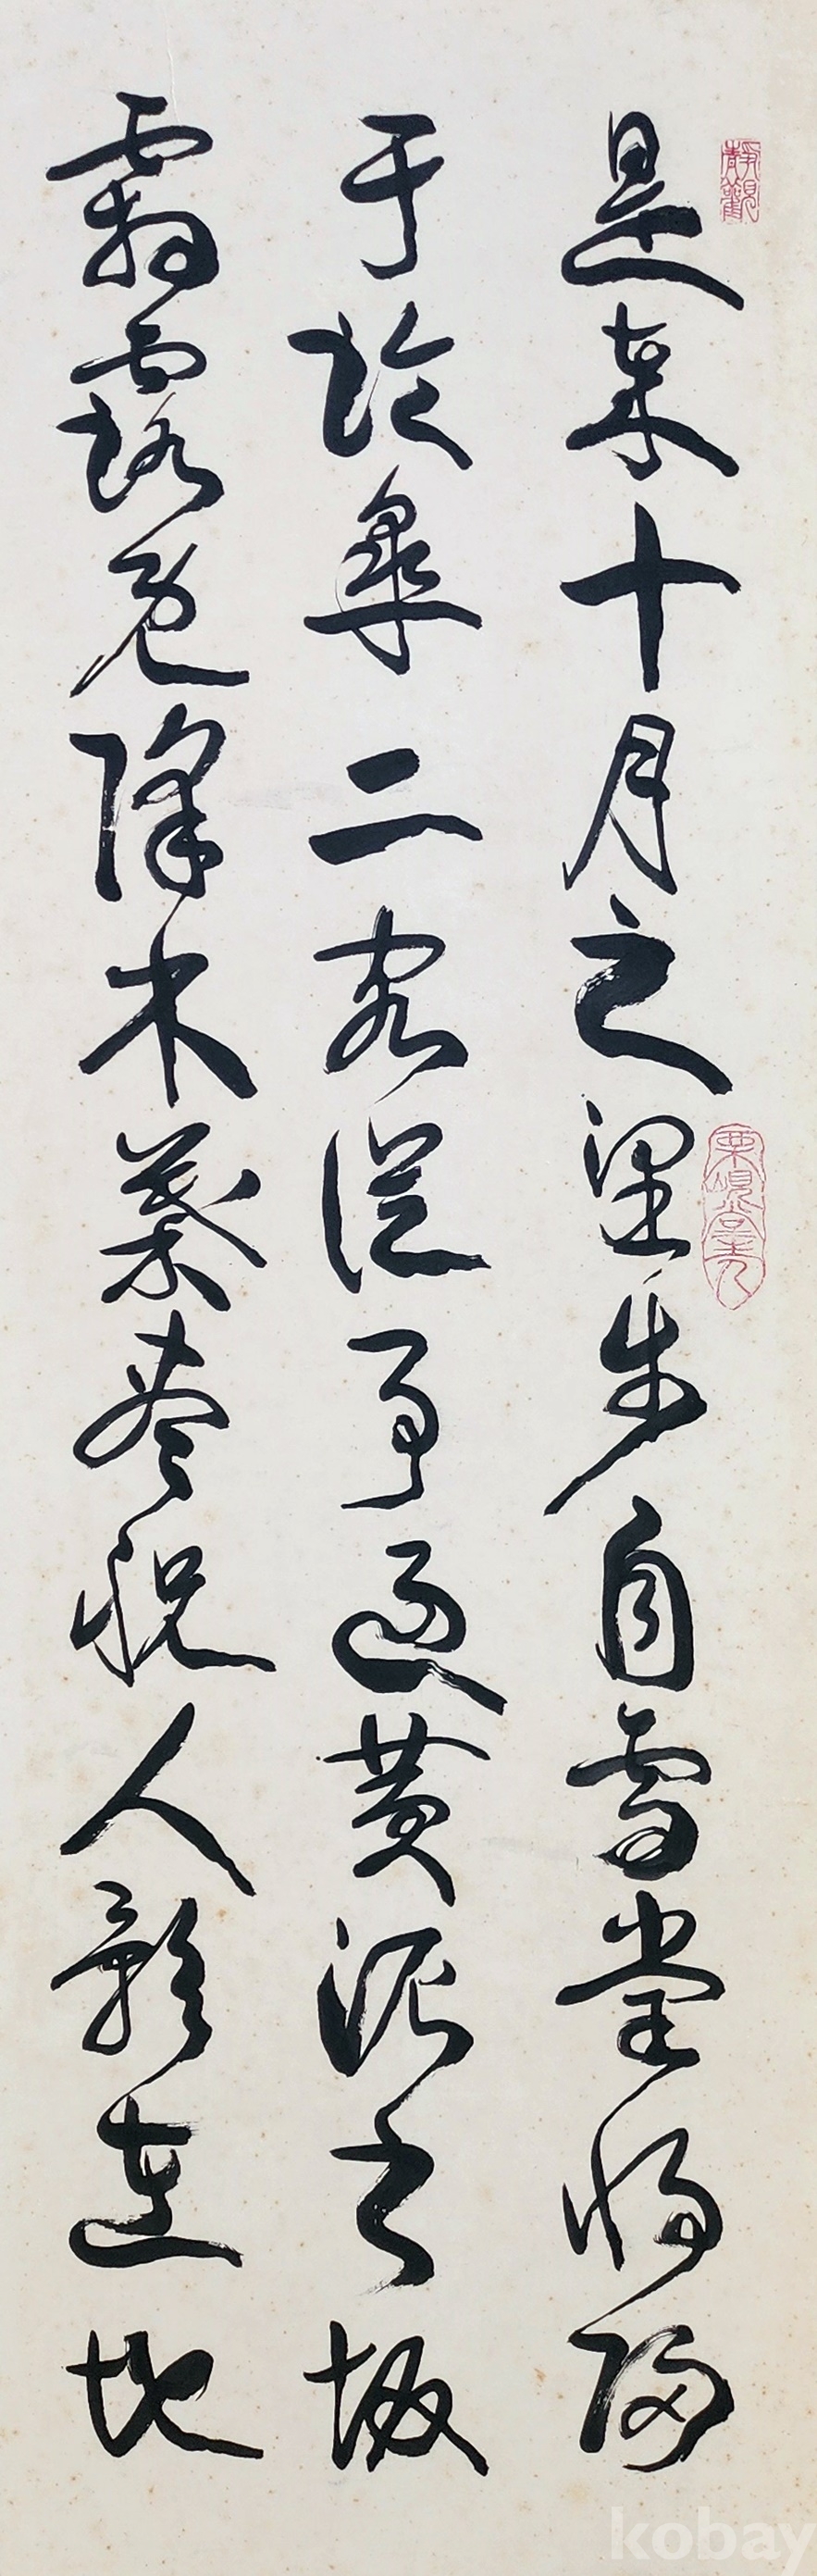 是歲十月之望步自雪堂將歸
于臨皐二客從予過黃泥之坂
霜露旣降木葉盡脫人影在地
靜觀
kobay